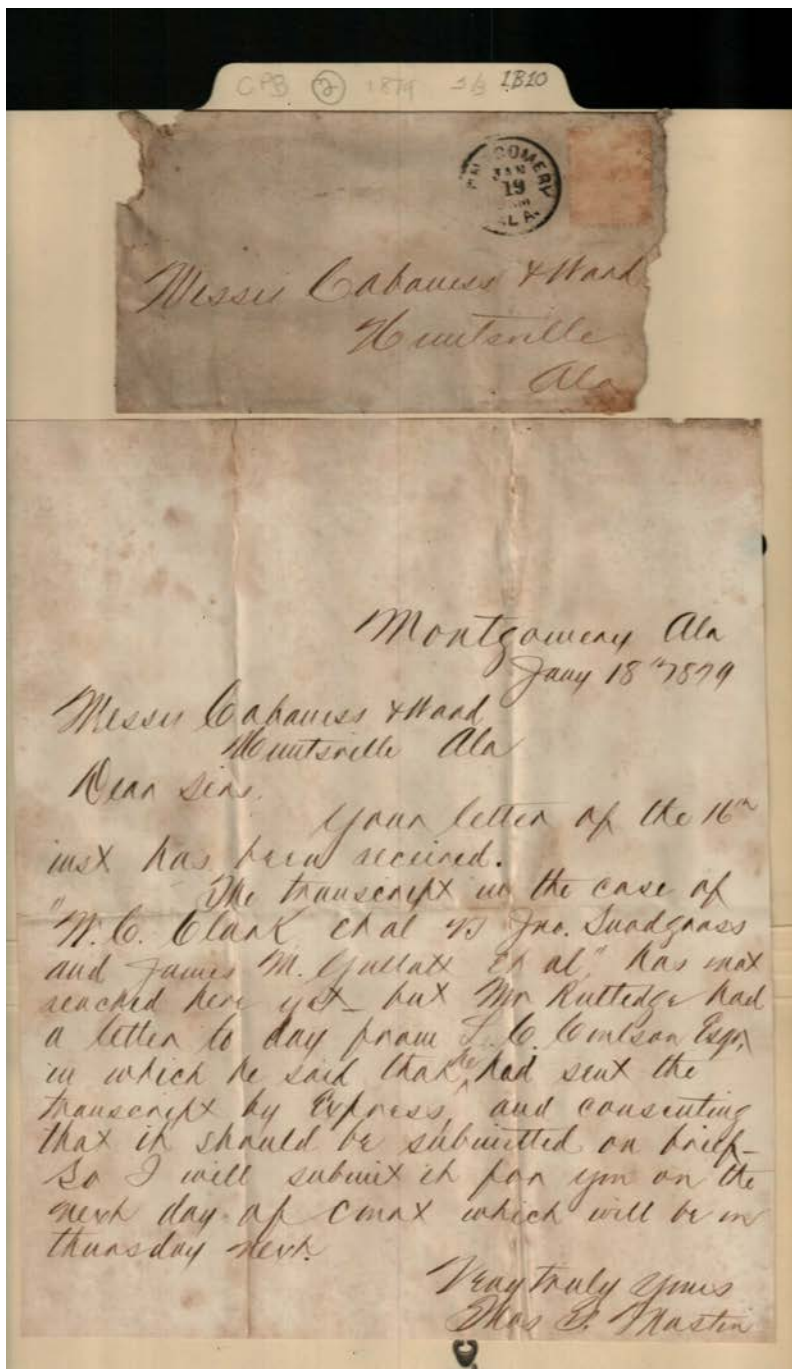 CPB 2 1879 IB10
MONTGOMERY
JAN
19
ALA.
Messrs Cabaniss & Ward
Huntsville
Ala
Montgomery Ala
Jany 18th 1879
Messrs Cabaniss & Ward
Huntsville Ala
Dear Sirs.
Your letter of the 16th
inst has been received.
The transcript in the case of
"W. C. Clark et al vs Jno. Snodgrass
and James M. Gullatt et al," has not
reached here yet_ but Mr Rutledge had
a letter to day from L. C. Coulson Esqr,
in which he said that he had sent the
transcript by Express, and consenting
that it should be submitted on brief_
So I will submit it for you on the
next day of court which will be on
thursday next.
Very truly yours
Thos B. Mastin